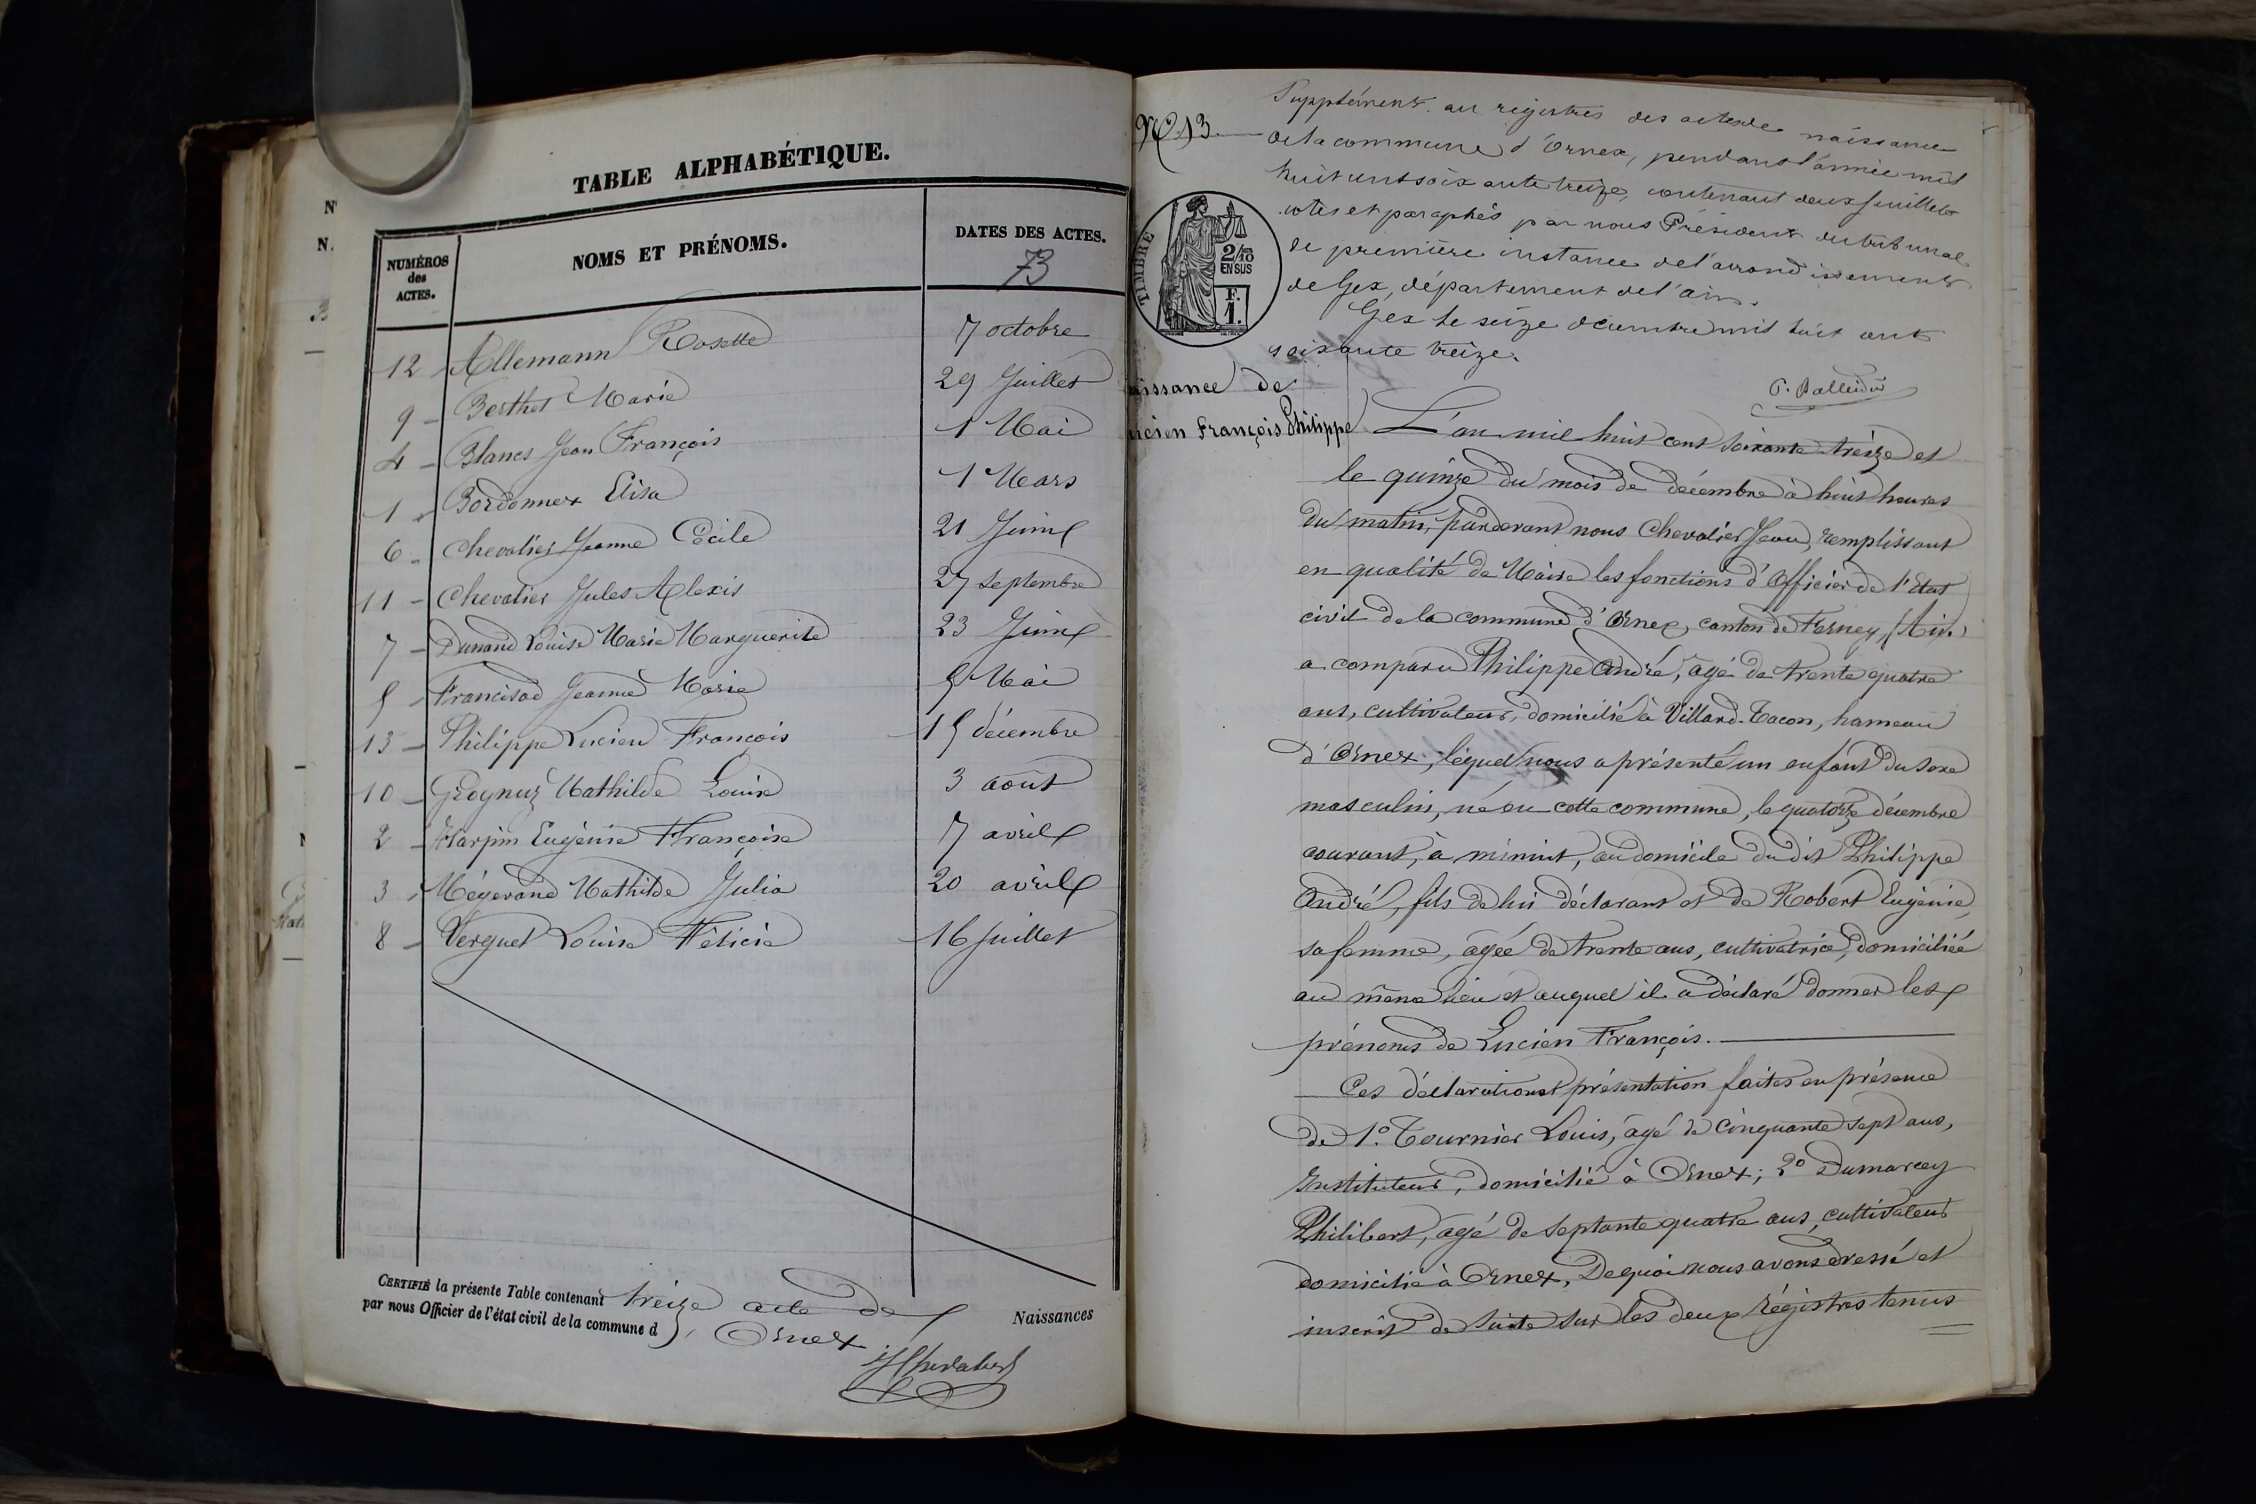 TABLE ALPHABÉTIQUE.
NUMÉROS des ACTES.
NOMS ET PRÉNOMS.
DATES DES ACTES.
73
12 Allemann Rosette 7 octobre
9 Berthet Marie 29 Juillet
4 Blancs Jean François 1 Mai
1 Bordonnex Elisa 1 Mars
6 Chevalier Jeanne Cécile 21 Juin
11 Chevalier Jules Alexis 27 septembre
7 Dunand Louise Marie Marguerite 23 Juin
5 Francisod Jeanne Marie 5 Mai
13 Philippe Lucien François 15 décembre
10 Groynuz Mathilde Louise 3 août
2 Harpin Eugénie Françoise 7 avril
3 Mégevand Mathilde Julia 20 avril
8 Verguet Louise Félicie 16 juillet
CERTIFIÉ la présente Table contenant treize acte de Naissances
par nous Officier de l'état civil de la commune d' Ornex
J Chevalier
No 13
Supplément au registres des actes de naissance
de la commune d'Ornex, pendant l'année mil
huit cent soixante treize, contenant deux feuillets
cotés et paraphés par nous Président du tribunal
de première instance de l'arrondissement
de Gex, département de l'ain.
Gex le seize décembre mil huit cent
soixante treize.
TIMBRE
2/10
EN SUS
F.
1.
issance de
cien François Philippe
L'an mil huit cent soixante trèize et
le quinze du mois de décembre à huit heures
du matin, pardevant nous Chevalier Jean, remplissant
en qualité de Maire les fonctions d'Officier de l'Etat
civil de la commune d'Ornex, canton de Ferney, (Ain)
a comparu Philippe André, agé de trente quatre
ans, cultivateur, domicilié à Villard-Tacon, hameau
d'Ornex, lequel nous a présenté un enfant du sexe
masculin, né en cette commune, le quatorze décembre
courant, à minuit, au domicile du dit Philippe
André, fils de lui déclarant et de Robert Eugénie,
sa femme, agée de trente ans, cultivatrice, domiciliée
au même lieu et auquel il a déclaré donner les
prénoms de Lucien François.
Ces déclaration et présentation faites en présence
de 1.° Tournier Louis, âgé de cinquante sept ans,
Instituteur, domicilié à Ornex; 2° Dumarcey
Philibert, agé de septante quatre ans, cultivateur
domicilié à Ornex, De quoi nous avons dressé et
inscrit de suite sur les deux régistres tenus